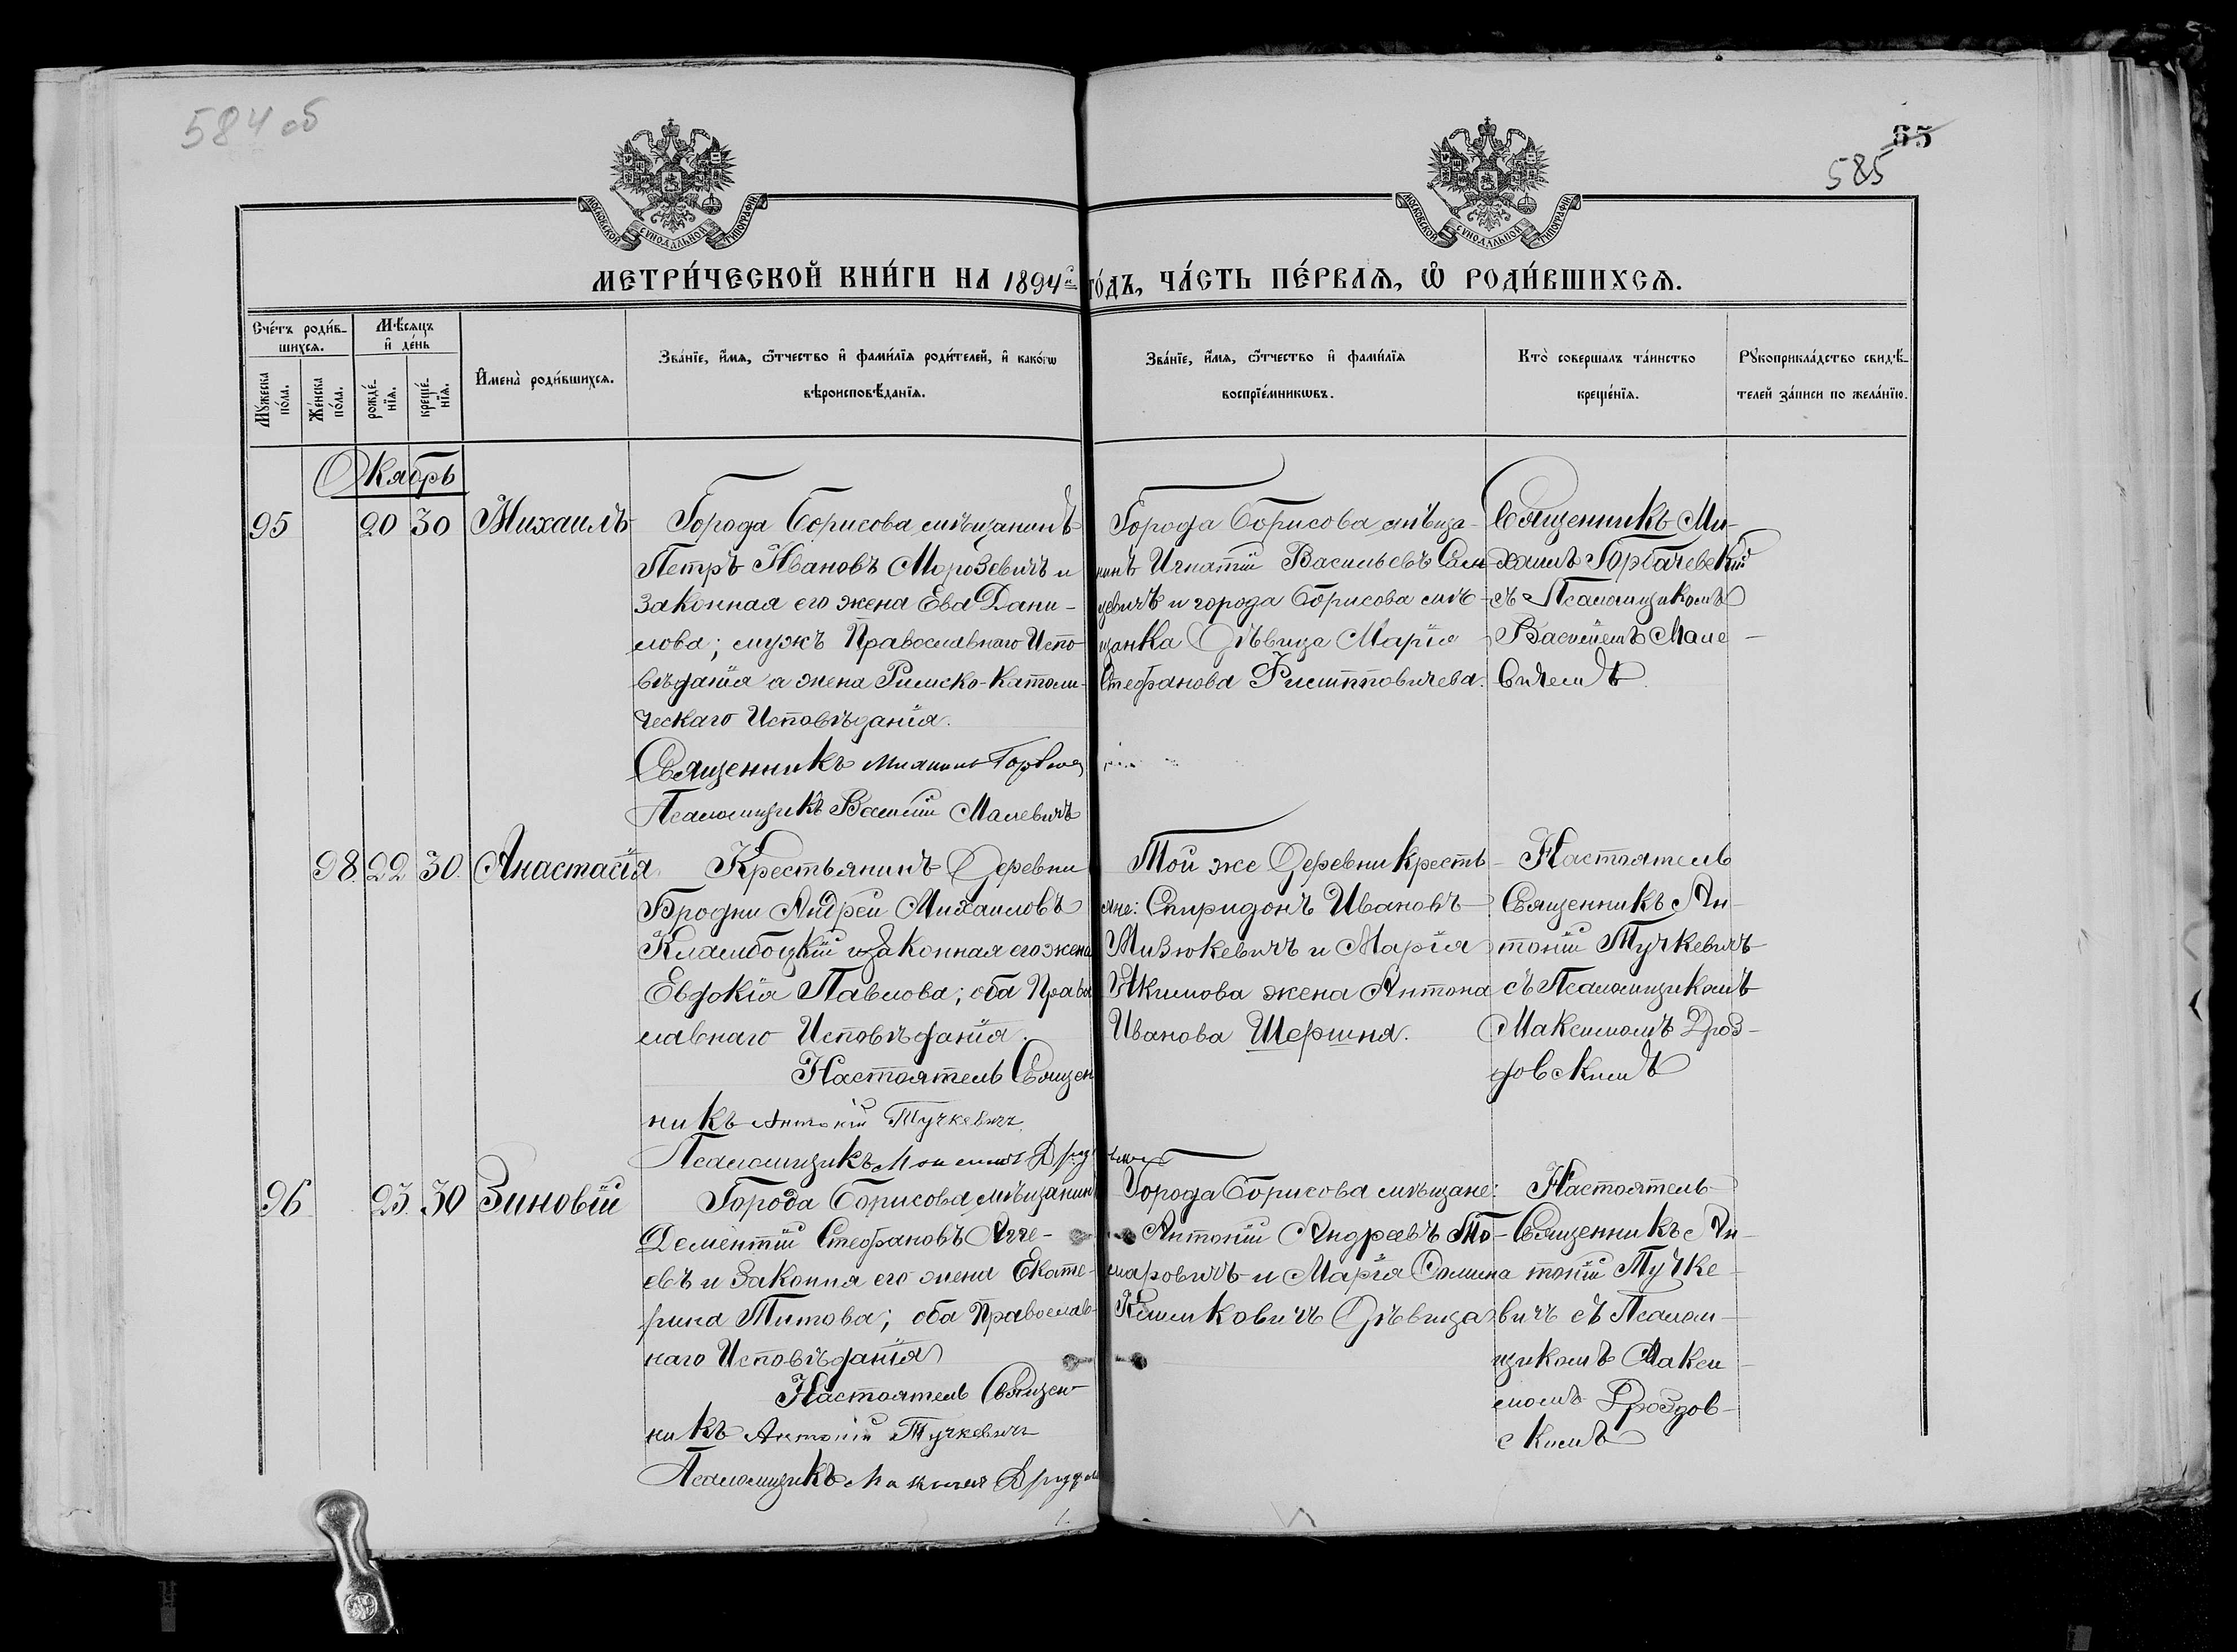 584 об
65
585
МОСКОВСКОЙ СУНОДАЛЬНОЙ ТИПОГРАФІИ
МОСКОВСКОЙ СУНОДАЛЬНОЙ ТИПОГРАФІИ
МЕТРИ́ЧЕСКОЙ КНИ́ГИ НА 1894й ГО́ДЪ, ЧА́СТЬ ПЕ́РВАѦ, Ѡ РОДИ́ВШИХСѦ.
Сче́тъ роди́в-
шихсѧ.
Мѣ́сѧцъ
и де́нь
Мꙋ́жеска
по́ла.
Же́нска
по́ла.
рожде́-
нїѧ.
креще́-
нїѧ.
Имена̀ роди́вшихсѧ.
Зва́нїе, и́мѧ, ѻ҆́тчество и фами́лїѧ роди́телей, и како́гѡ
вѣроисповѣ́данїѧ.
Зва́нїе, и́мѧ, ѻ҆́тчество и фами́лїѧ
воспрїе́мникѡвъ.
Кто̀ соверша́лъ та́инство
креще́нїѧ.
Рꙋкоприкла́дство свидѣ́-
телей за́писи по жела́нїю.
Окябрь
95 20 30 Михаилъ
Города Борисова мѣщанинъ
Петръ Ивановъ Морозевичъ и
законная его жена Ева Дани-
лова; мужъ Православнаго Испо-
вѣданія а жена Римско-Католи-
ческаго Исповѣданія.
Священникъ
Псаломщикъ Василій Малевичъ
Города Борисова мѣща-
нинъ Игнатій Васильевъ
и города Борисова мѣ-
щанка Дѣвица Марія
Стефанова
Священникъ Ми-
хаилъ Горбачевскій
съ Псаломщикомъ
Василіемъ Мале-
вичемъ
98 22 30 Анастасія
Крестьянинъ Деревни
Бродни Андрей Михаиловъ
и законная его жена
Евдокія Павлова; оба Право
славнаго Исповѣданія.
Настоятель Священ
никъ Антоній Тучкевичъ
Псаломщикъ
Той же Деревни кресть-
яне: Спиридонъ Ивановъ
Мизюкевичъ и Марія
Якимова жена Антона
Иванова Шершня.
Настоятель
Священникъ Ан-
тоній Тучкевичъ
съ Псаломщикомъ
Максимомъ Дроз-
довскимъ
96 23 30 Зиновій
Города Борисова мѣщанин
Дементій Стефановъ Агге-
евъ и законня его жена Екате-
рина Титова; оба Православ-
наго Исповѣданія
Настоятель Священ-
никъ Антоній Тучкевичъ
Псаломщикъ
Города Борисова мѣщане:
Антоній Андреевъ То-
маровичъ и Марія Сомина
Дѣвица
Настоятель
Священникъ Ан-
тоній Тучке-
вичъ съ Псалом-
щикомъ Макси-
момъ Дроздов-
скимъ